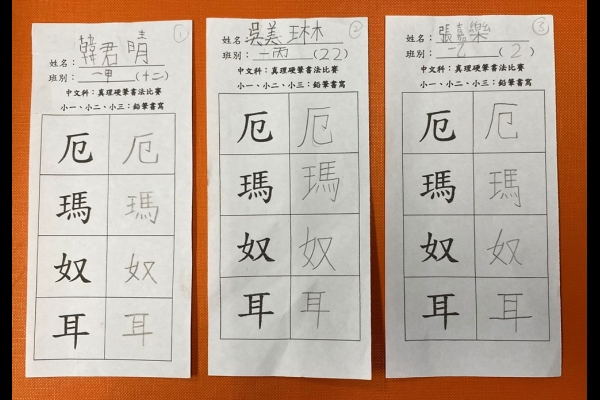 ①
姓名：韓君晴
班別：一甲(十二)
中文科：真理硬筆書法比賽
小一、小二、小三：鉛筆書寫
厄 厄
瑪 瑪
奴 奴
耳 耳
②
姓名：吳美琳
班別：一丙(22)
中文科：真理硬筆書法比賽
小一、小二、小三：鉛筆書寫
厄 厄
瑪 瑪
奴 奴
耳 耳
③
姓名：張嘉樂
班別：一乙(2)
中文科：真理硬筆書法比賽
小一、小二、小三：鉛筆書寫
厄 厄
瑪 瑪
奴 奴
耳 耳